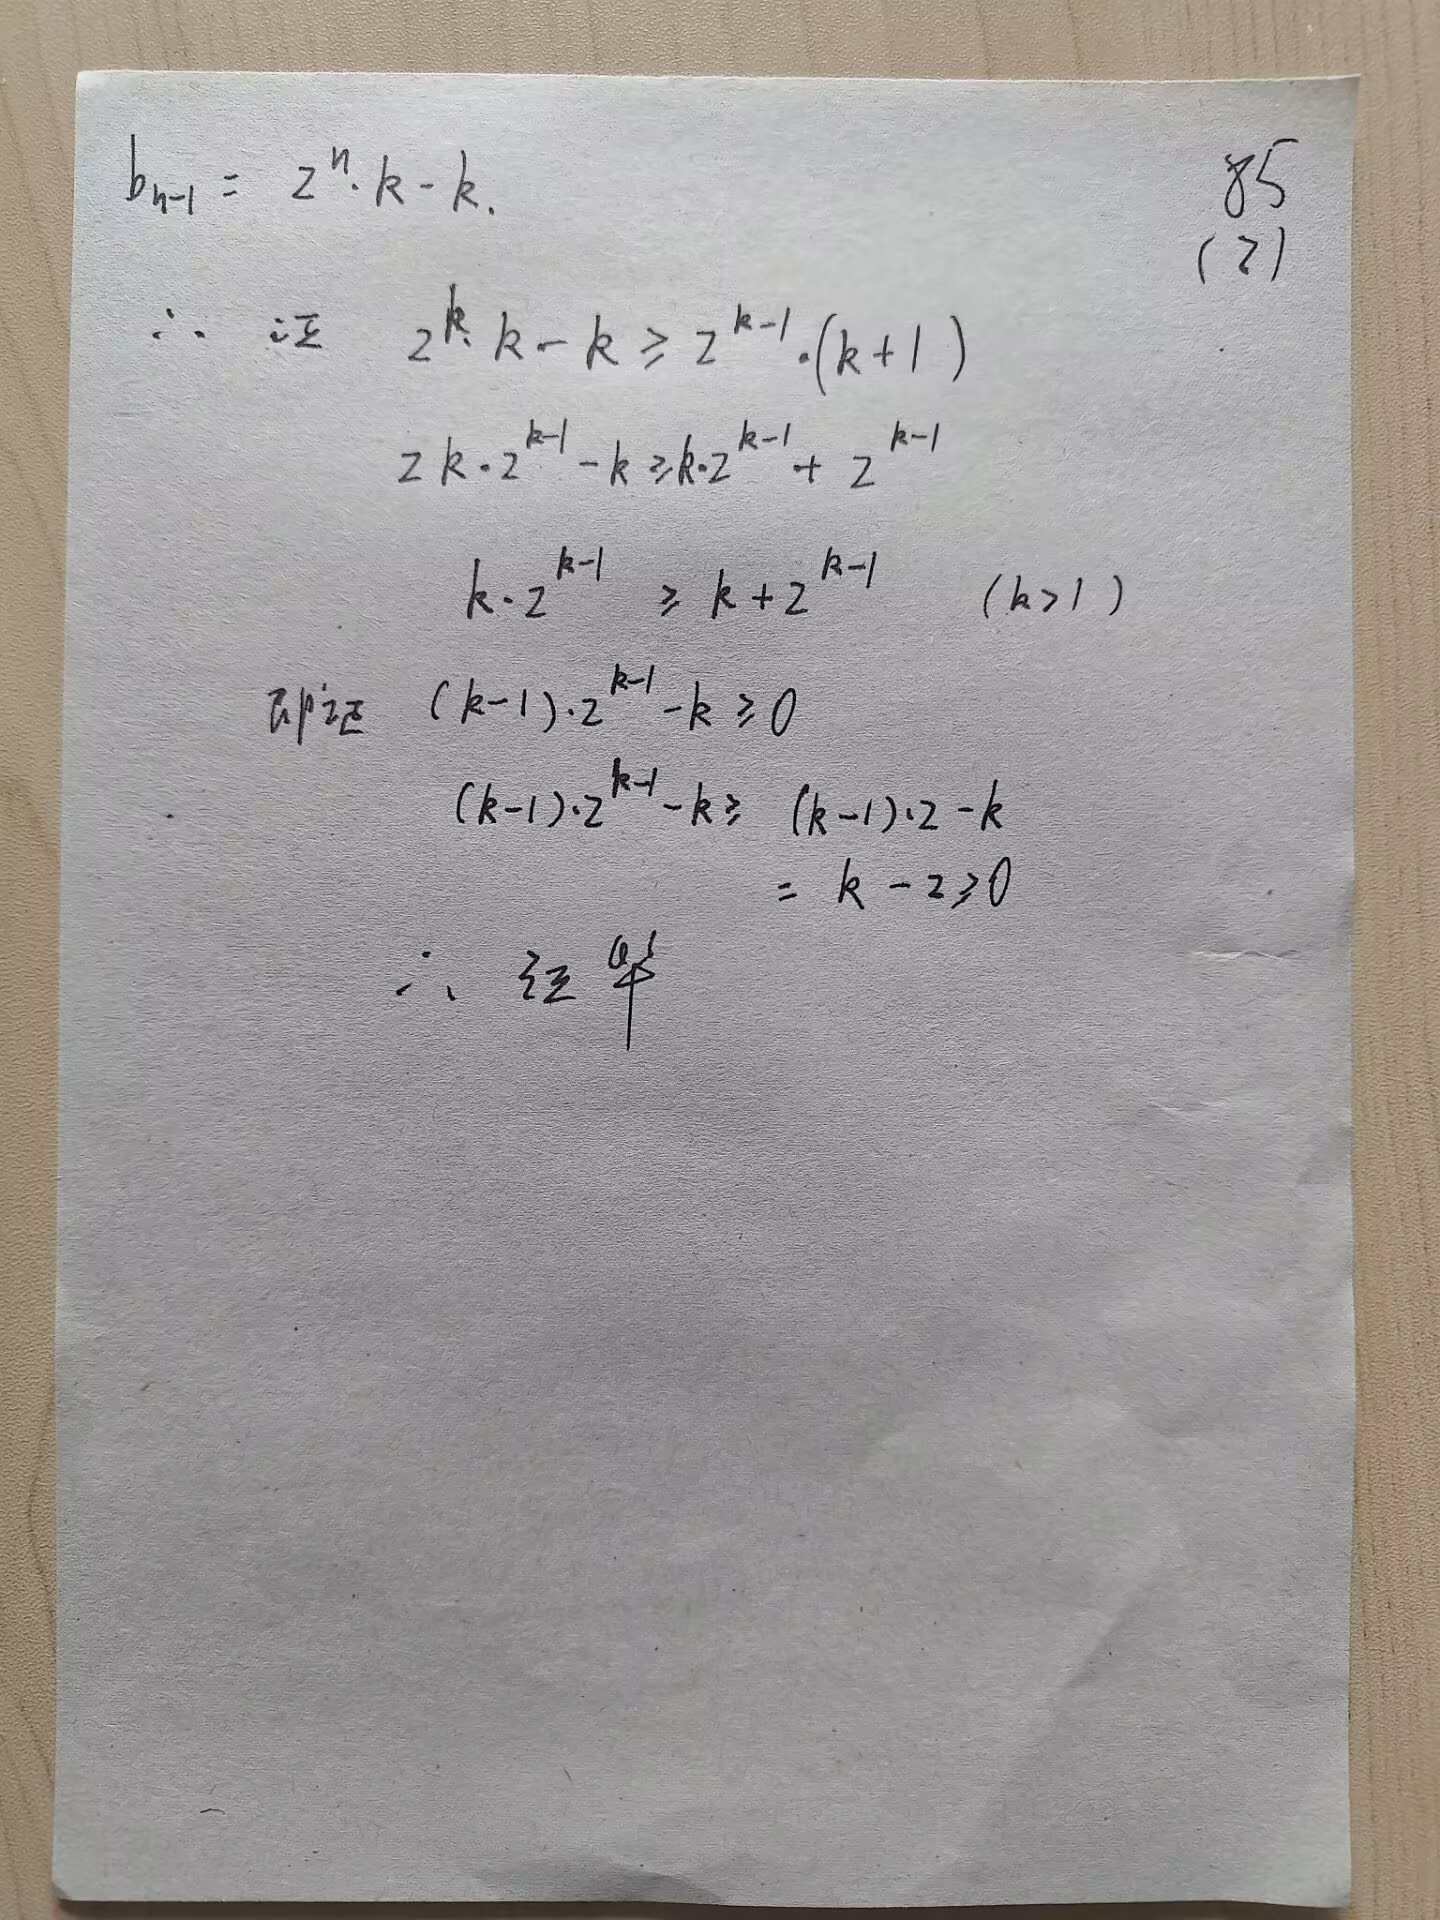 b_{n-1} = 2^n · k - k.
85
(2)
∴ 证 2^k · k - k ≥ 2^{k-1} · (k+1)
2k · 2^{k-1} - k ≥ k · 2^{k-1} + 2^{k-1}
k · 2^{k-1} ≥ k + 2^{k-1} (k>1)
即证 (k-1) · 2^{k-1} - k ≥ 0
(k-1) · 2^{k-1} - k ≥ (k-1) · 2 - k
= k - 2 ≥ 0
∴ 证毕